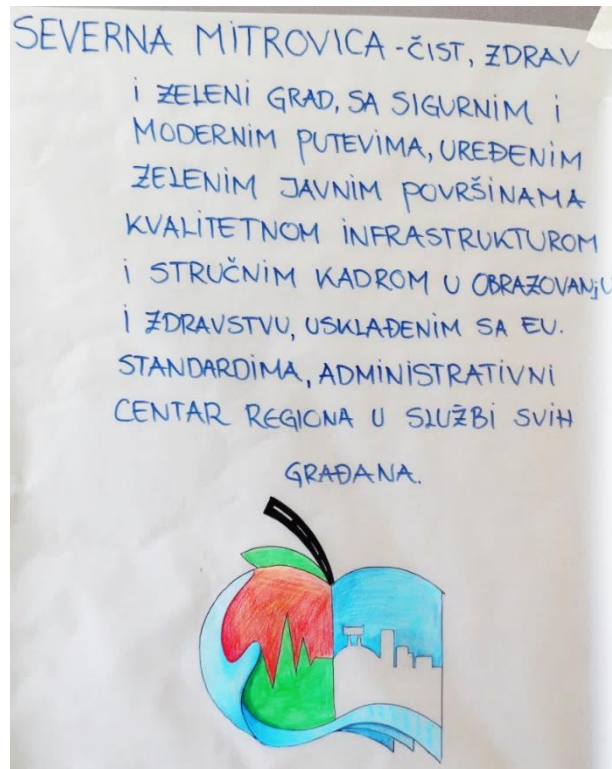 SEVERNA MITROVICA - ČIST, ZDRAV
I ZELENI GRAD, SA SIGURNIM I
MODERNIM PUTEVIMA, UREĐENIM
ZELENIM JAVNIM POVRŠINAMA
KVALITETNOM INFRASTRUKTUROM
I STRUČNIM KADROM U OBRAZOVANJU
I ZDRAVSTVU, USKLAĐENIM SA EU.
STANDARDIMA, ADMINISTRATIVNI
CENTAR REGIONA U SLUŽBI SVIH
GRAĐANA.